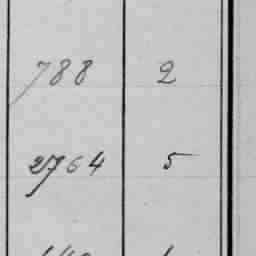 788 2
2764 5